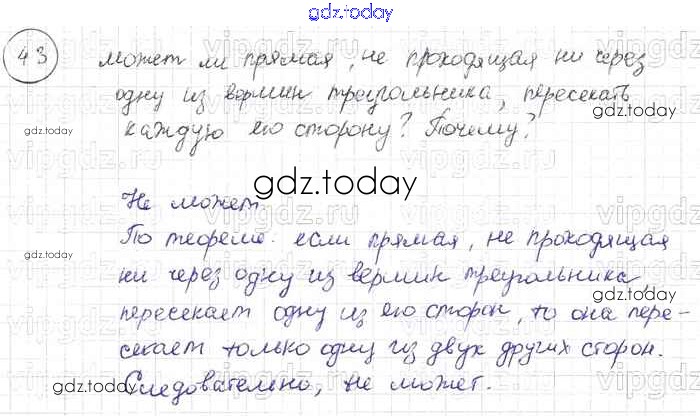 gdz.today
43 Может ли прямая, не проходящая ни через
одну из вершин треугольника, пересекать
gdz.today gdz.today
каждую его сторону? Почему?
gdz.today
Не может.
По теореме: если прямая, не проходящая
ни через одну из вершин треугольника,
gdz.today
пересекает одну из его сторон, то она пере-
секает только одну из двух других сторон.
gdz.today
Следовательно, не может.
gdz.today